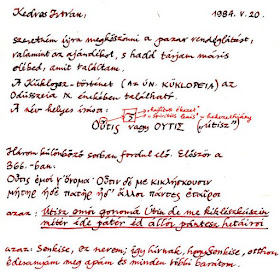 Kedves István, 1984. V. 20.
szeretném újra megköszönni a pazar vendéglátást,
valamint az ajándékot, s hadd tárjam máris
eléd, amit találtam.
A Küklopsz-történet (AZ ÚN. KÜKLOPEIA) az
Odüsszeia IX. énekében található.
A név helyes írása:
Οὖτις vagy ΟΥΤΙΣ („utisz")
Három különböző sorban fordul elő. Először a
366.-ban:
Οὖτις ἐμοί γ' ὄνομα· Οὖτιν δέ με κικλήσκουσιν
μήτηρ ἠδὲ πατὴρ ἠδ' ἄλλοι πάντες ἑταῖροι
azaz: Utisz emoi gonoma Utin de me kiklészkuszin
métér éde patér éd álloi pantesz hetairoi
azaz: Senkise, ez nevem; így hívnak, hogy Senkise, otthon
édesanyám meg apám és minden többi barátom.